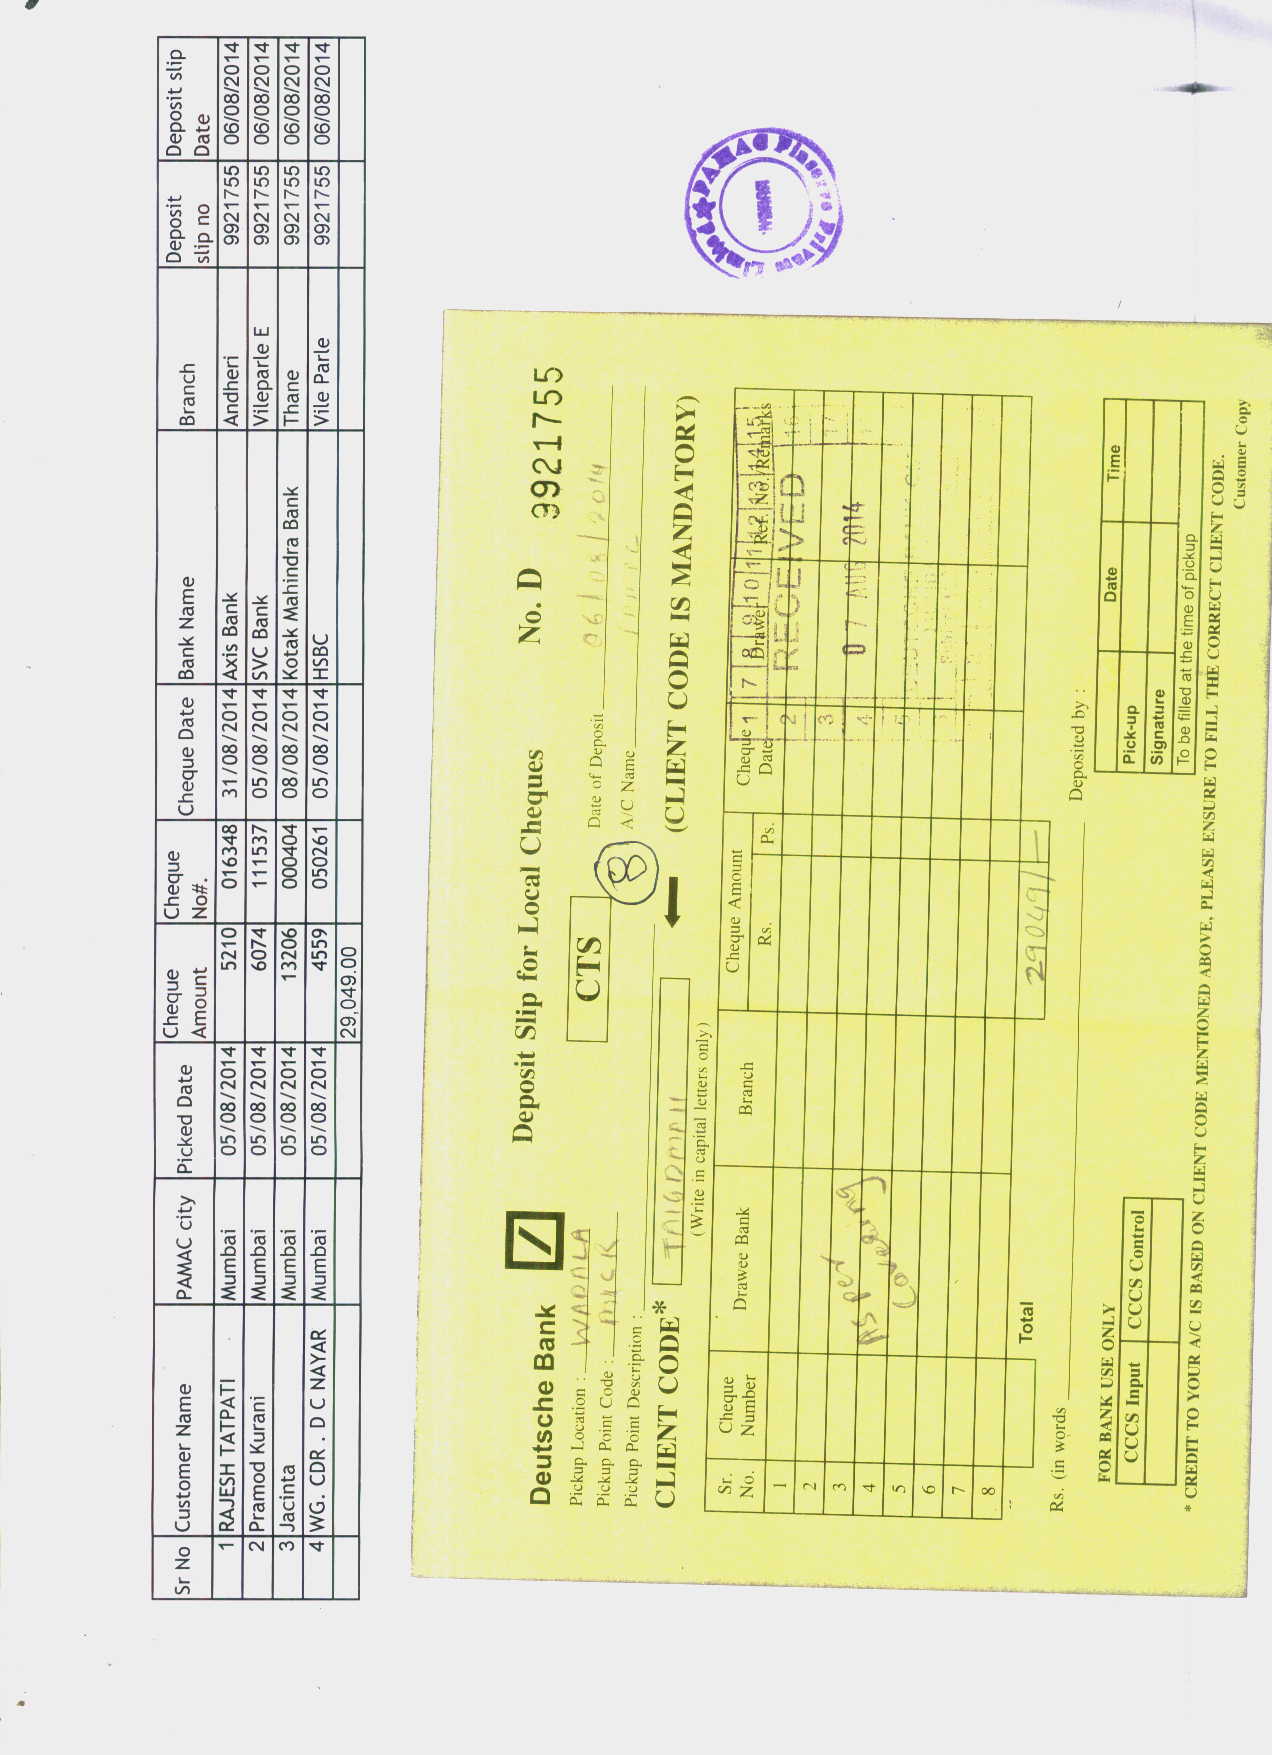 Sr No Customer Name PAMAC city Picked Date Cheque Amount Cheque No#. Cheque Date Bank Name Branch Deposit slip no Deposit slip Date
1 RAJESH TATPATI Mumbai 05/08/2014 5210 016348 31/08/2014 Axis Bank Andheri 9921755 06/08/2014
2 Pramod Kurani Mumbai 05/08/2014 6074 111537 05/08/2014 SVC Bank Vileparle E 9921755 06/08/2014
3 Jacinta Mumbai 05/08/2014 13206 000404 08/08/2014 Kotak Mahindra Bank Thane 9921755 06/08/2014
4 WG. CDR . D C NAYAR Mumbai 05/08/2014 4559 050261 05/08/2014 HSBC Vile Parle 9921755 06/08/2014
29,049.00
PAMAC Finserve Private Limited
Deutsche Bank Deposit Slip for Local Cheques No. D 9921755
Pickup Location : WADALA CTS Date of Deposit 06/08/2014
Pickup Point Code : 8 A/C Name
Pickup Point Description :
CLIENT CODE* (CLIENT CODE IS MANDATORY)
(Write in capital letters only)
Sr. No. Cheque Number Drawee Bank Branch Cheque Amount Rs. Ps. Cheque Date Drawer Ref. No./Remarks
1 7 8 9 10 11 12 13 14 15
1
2 2 RECEIVED 16
3 As per 3 17
4 Covering 4 07 AUG 2014
5 5
6
7
8
Total 29049/-
Rs. (in words Deposited by :
FOR BANK USE ONLY Date Time
CCCS Input CCCS Control Pick-up
Signature
To be filled at the time of pickup
* CREDIT TO YOUR A/C IS BASED ON CLIENT CODE MENTIONED ABOVE, PLEASE ENSURE TO FILL THE CORRECT CLIENT CODE.
Customer Copy